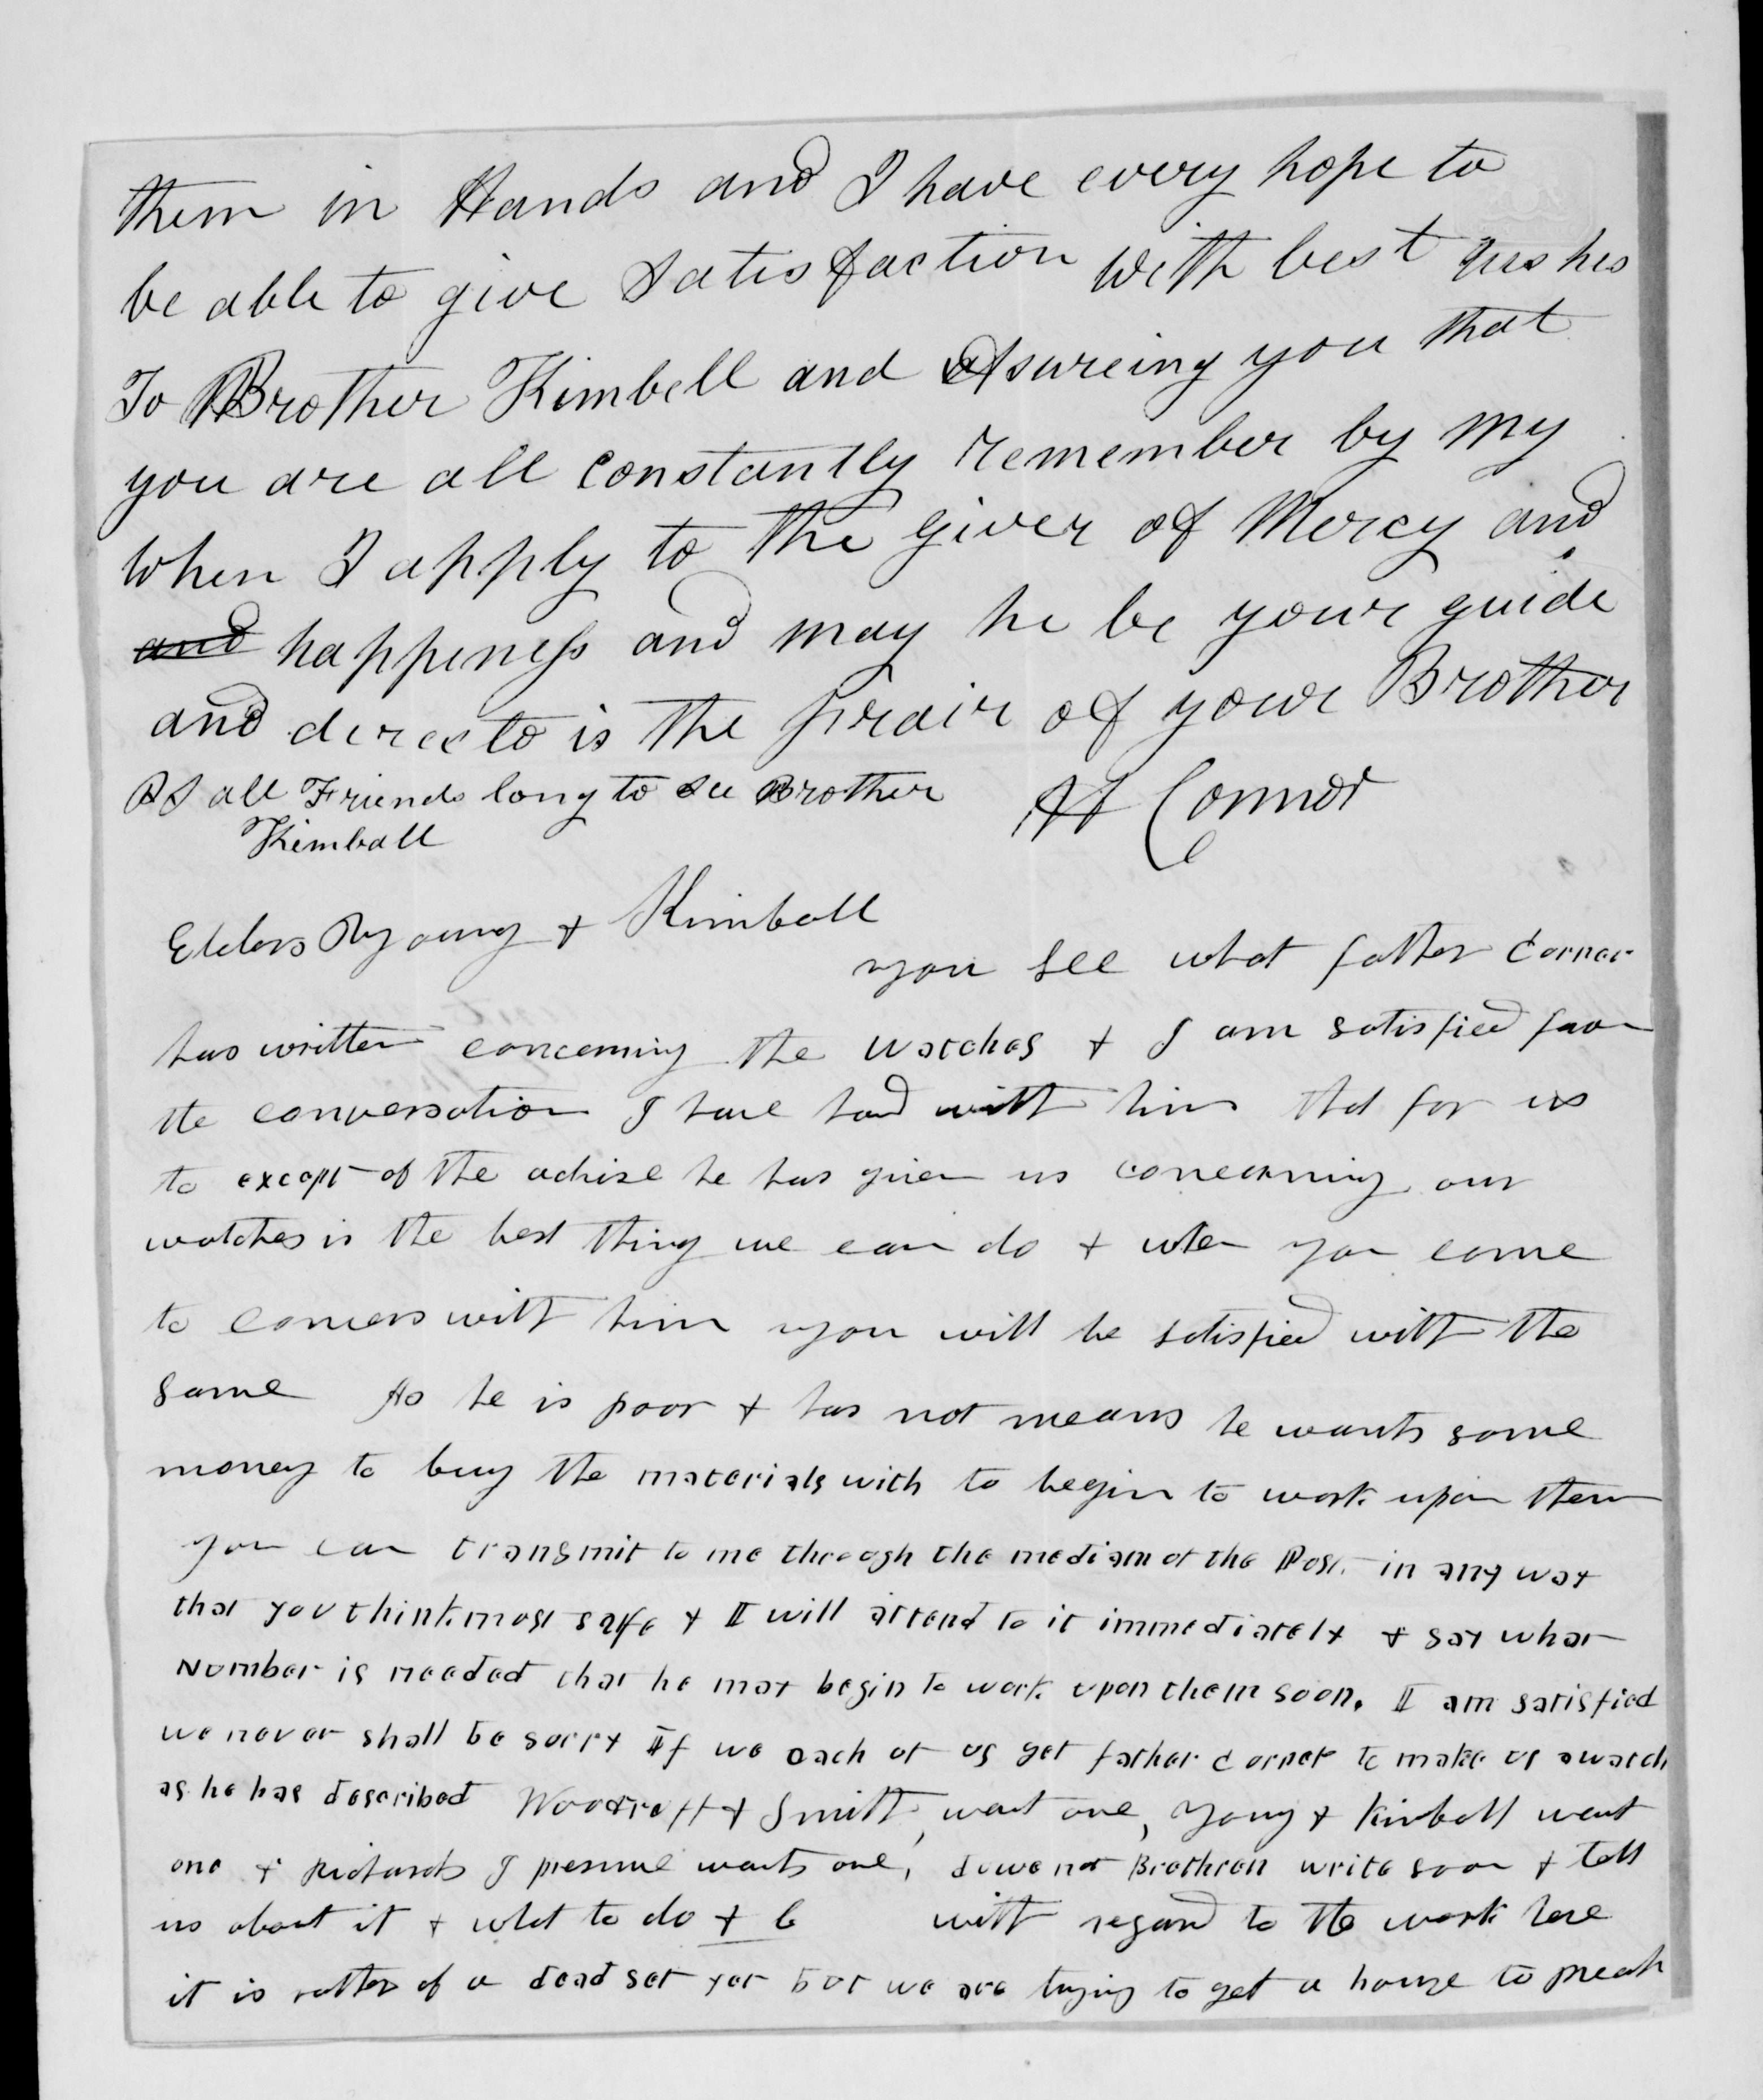 them in Hands and I have every hope to
be able to give Satisfaction With best
To Brother Kimbell and Assureing you that
you are all constantly remember by my
When I apply to the giver of Mercy and
and happiness and may he be your guide
and directo is the prair of your Brother
PS all Friends long to See Brother
Kimball
Connor
Elders Byoung + Kimball
you see what father Corner
has written concerning the watches + I am satisfied from
the conversation I have had with him that for us
to except of the advise he has given us concerning our
watches is the best thing we can do + when you come
to convers with him you will be satisfied with the
same As he is poor + has not means he wants some
money to buy the materials with to begin to work upon them
you can transmit to me through the medium of the Post in any way
that you think most safe + I will attend to it immediately + say what
Number is needed that he may begin to work upon them soon. I am satisfied
we never shall be sorry If we each of us get father Corner to make us a watch
as he has described Woodruff + Smith want one, Young + Kimball want
one + Richards I presume wants one, Brethren write soon + tell
us about it + what to do + c with regard to the work here
it is rather of a dead set yet but we are trying to get a house to preach